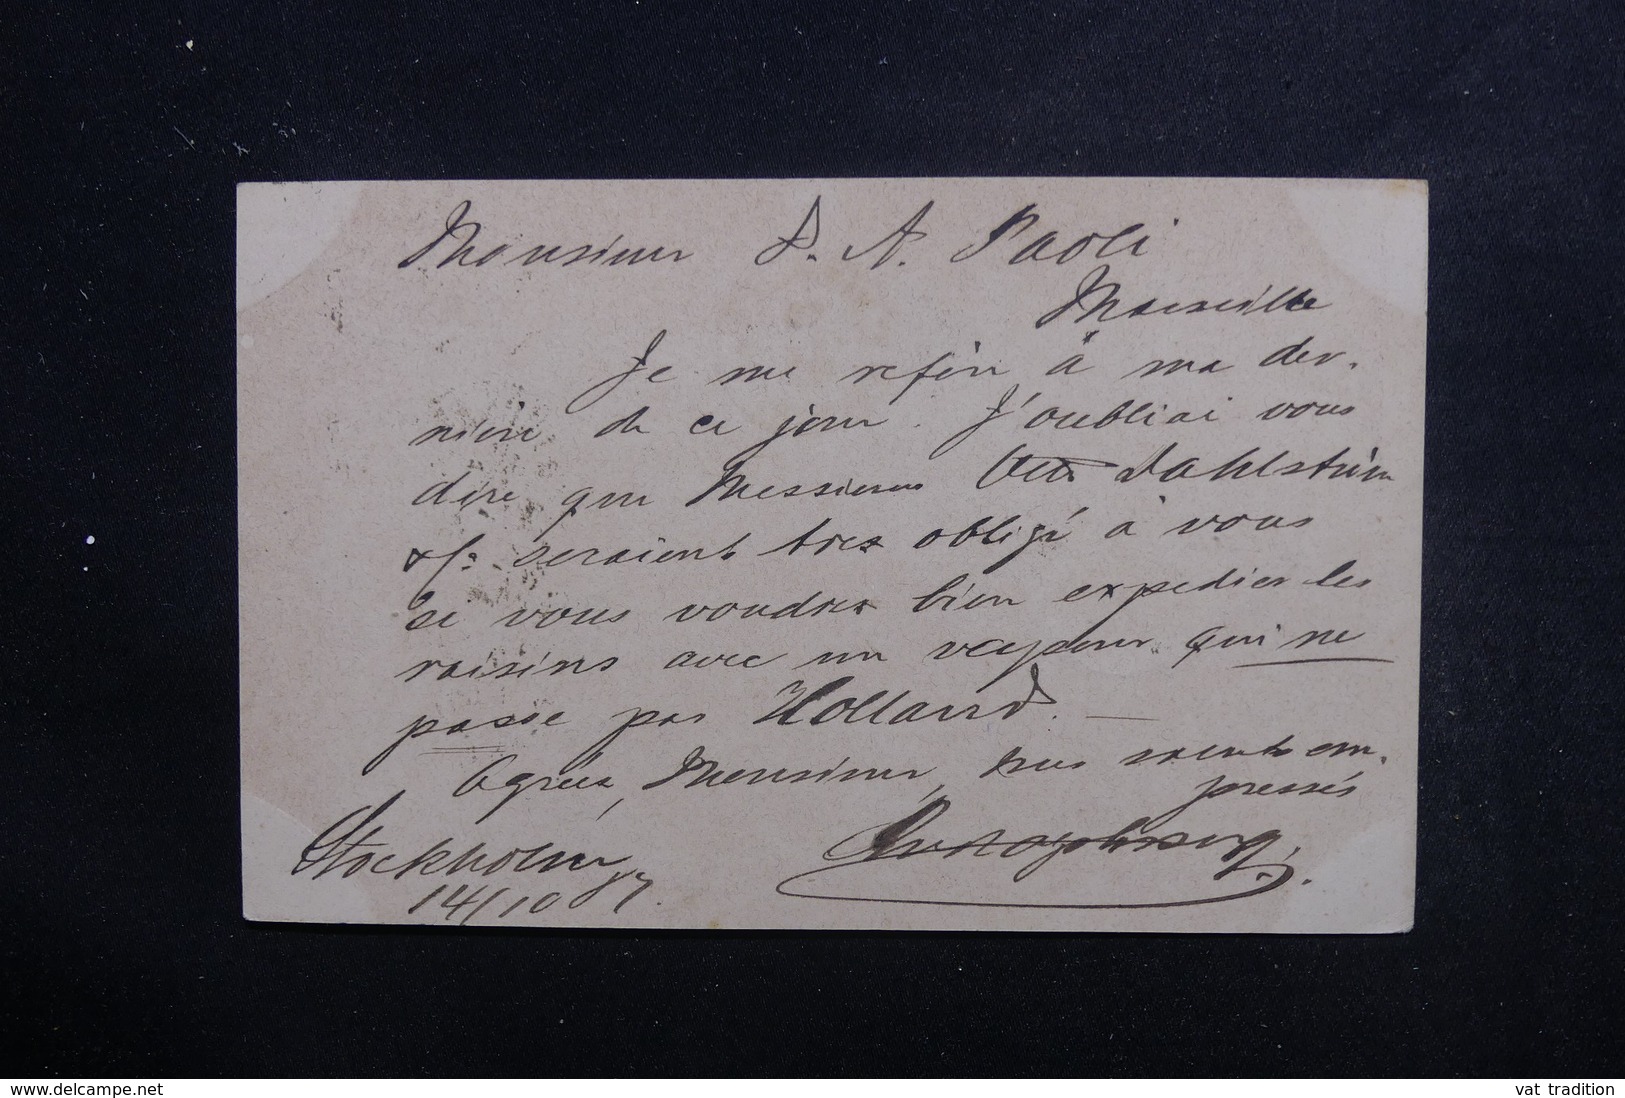 Monsieur P. A. Paoli
Marseille
Je me refère à ma der-
nière de ce jour. J'oubliai vous
dire que Messieurs Otto Dahlström
& Co seraient tres obligé à vous
si vous voudrez bien expedier les
raisins avec un vapeur qui ne
passe par Holland.
Agréez, Monsieur, mes saluts em-
pressés
Stockholm
14/10 87.
www.delcampe.net
vat_tradition